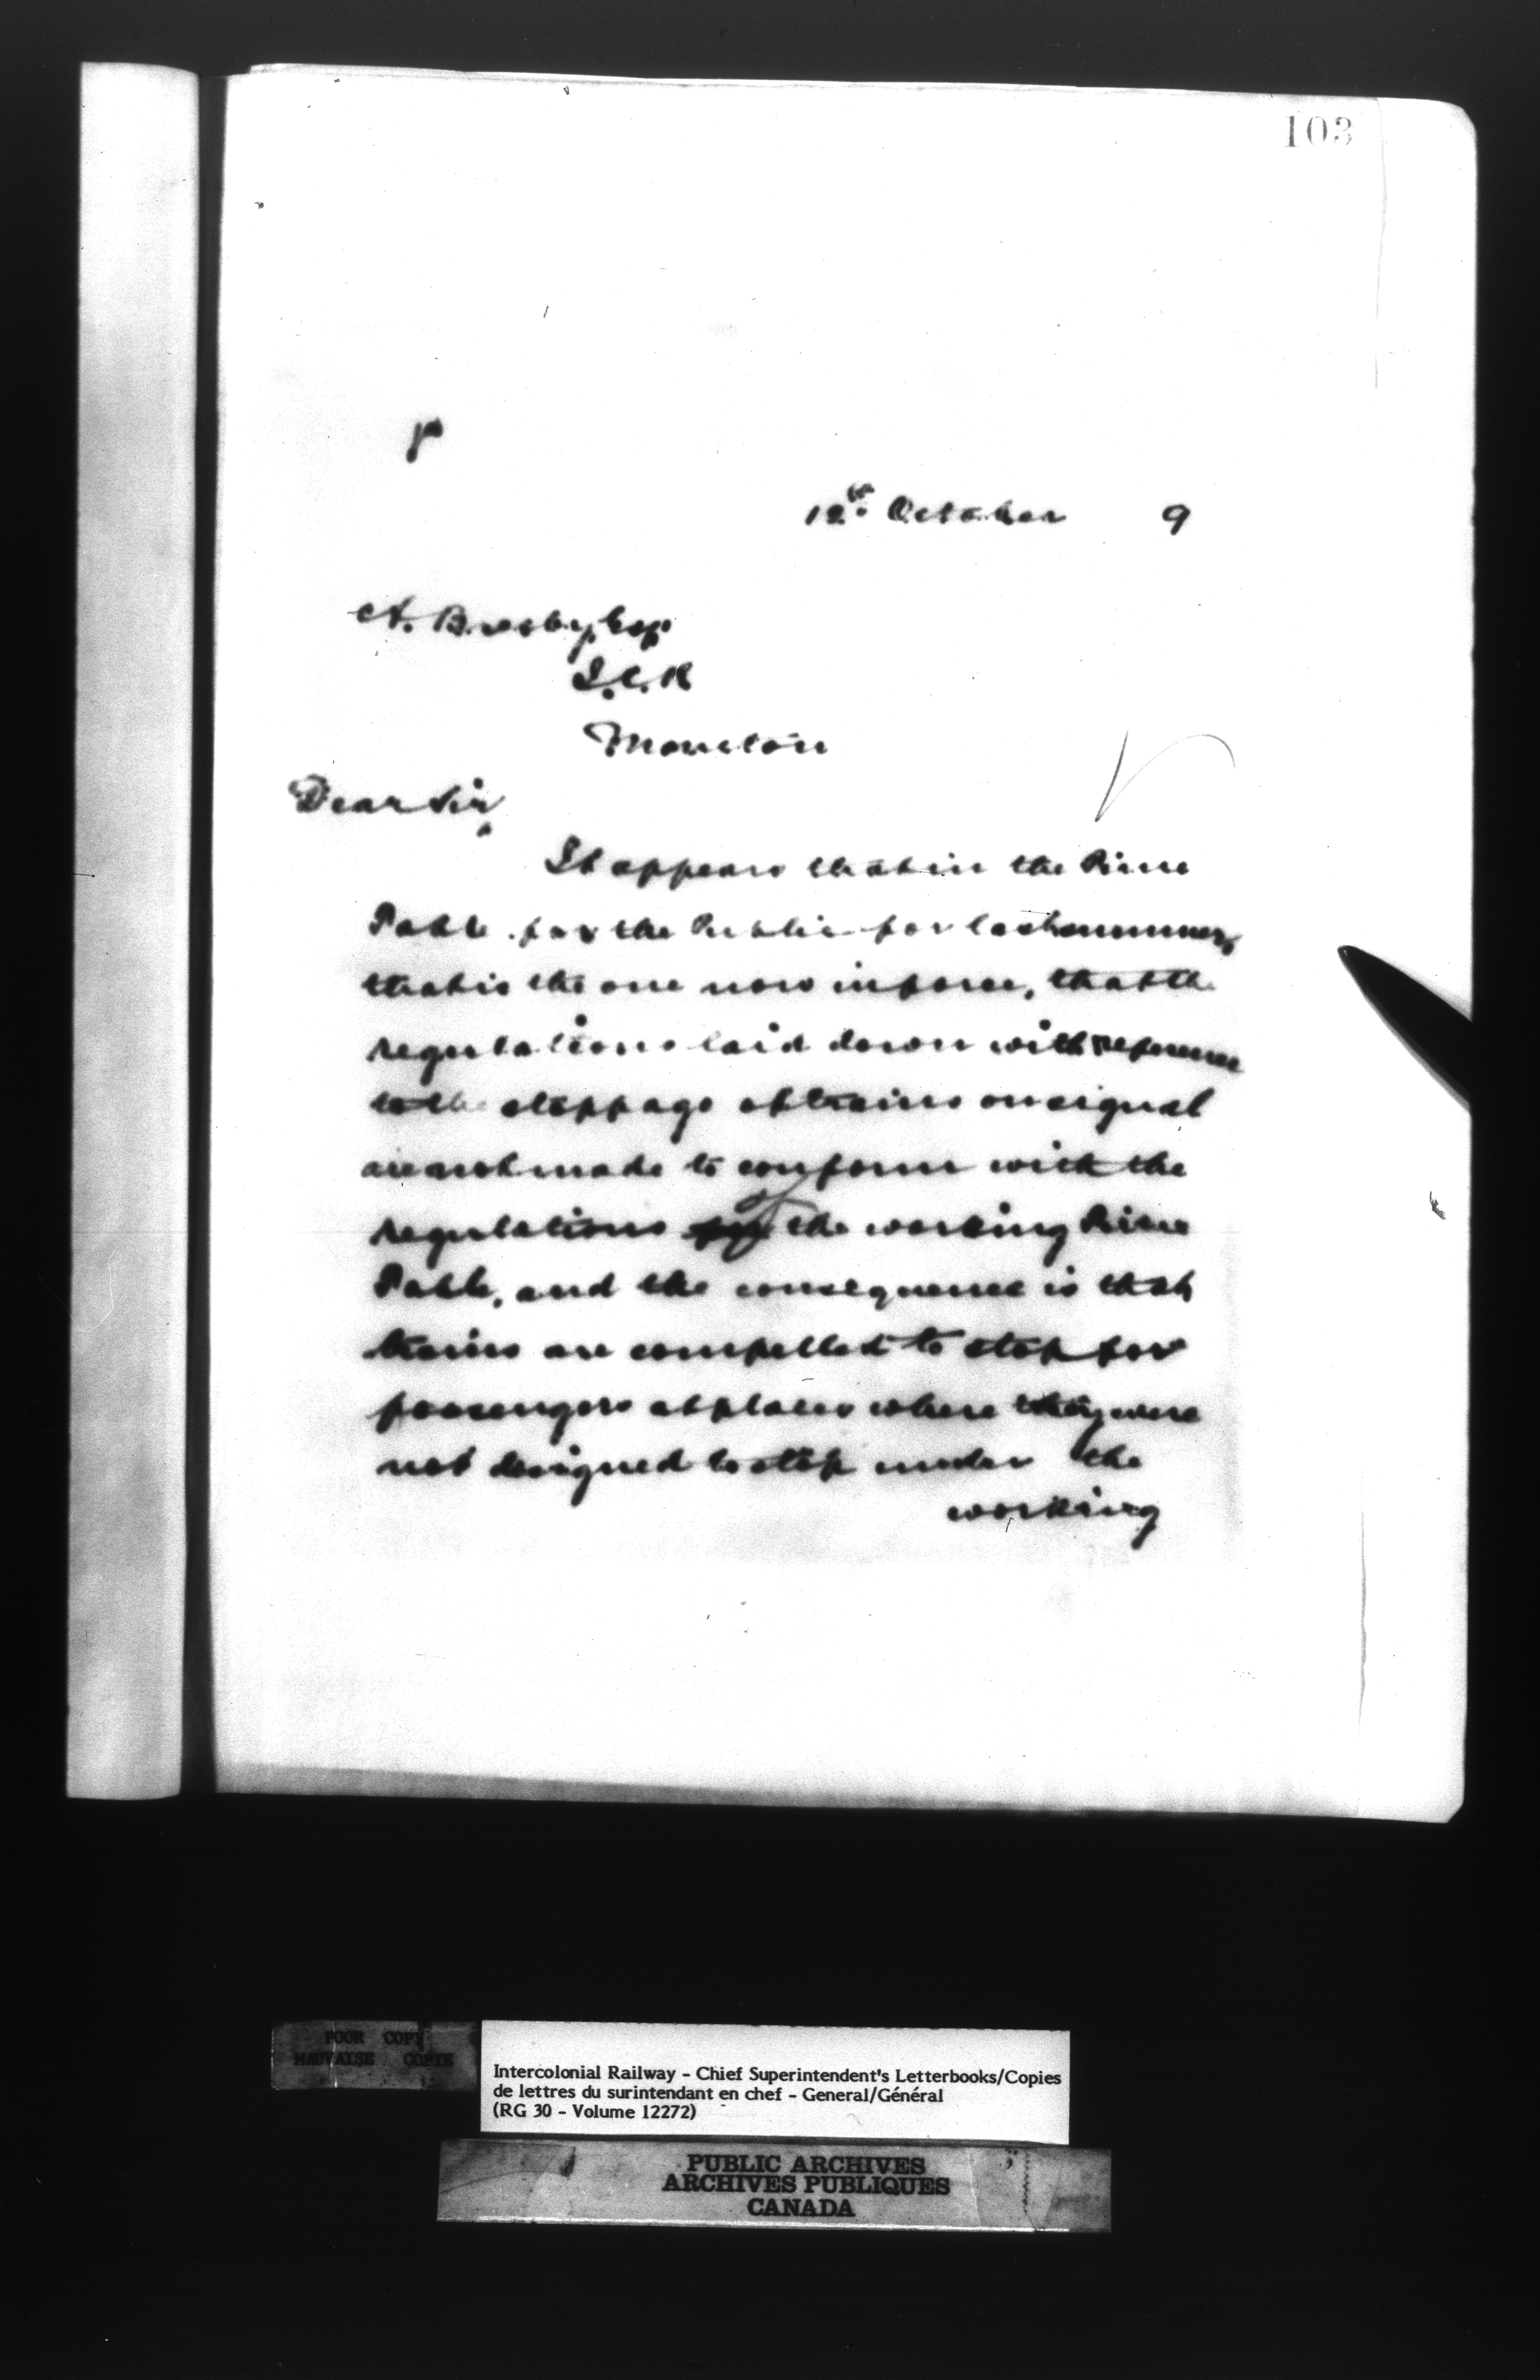 103
12th October 9
A. Busby Esq
I.C.R
Moncton
Dear Sir,
It appears that in the Time
Table for the Public for last summer,
that is the one now in force, that the
regulations laid down with reference
to the stoppage of trains on signal
are not made to conform with the
regulations of the working Time
Table, and the consequence is that
trains are compelled to stop for
passengers at places where they were
not designed to stop under the
working
POOR COPY
MAUVAISE COPIE
Intercolonial Railway - Chief Superintendent's Letterbooks/Copies
de lettres du surintendant en chef - General/Général
(RG 30 - Volume 12272)
PUBLIC ARCHIVES
ARCHIVES PUBLIQUES
CANADA